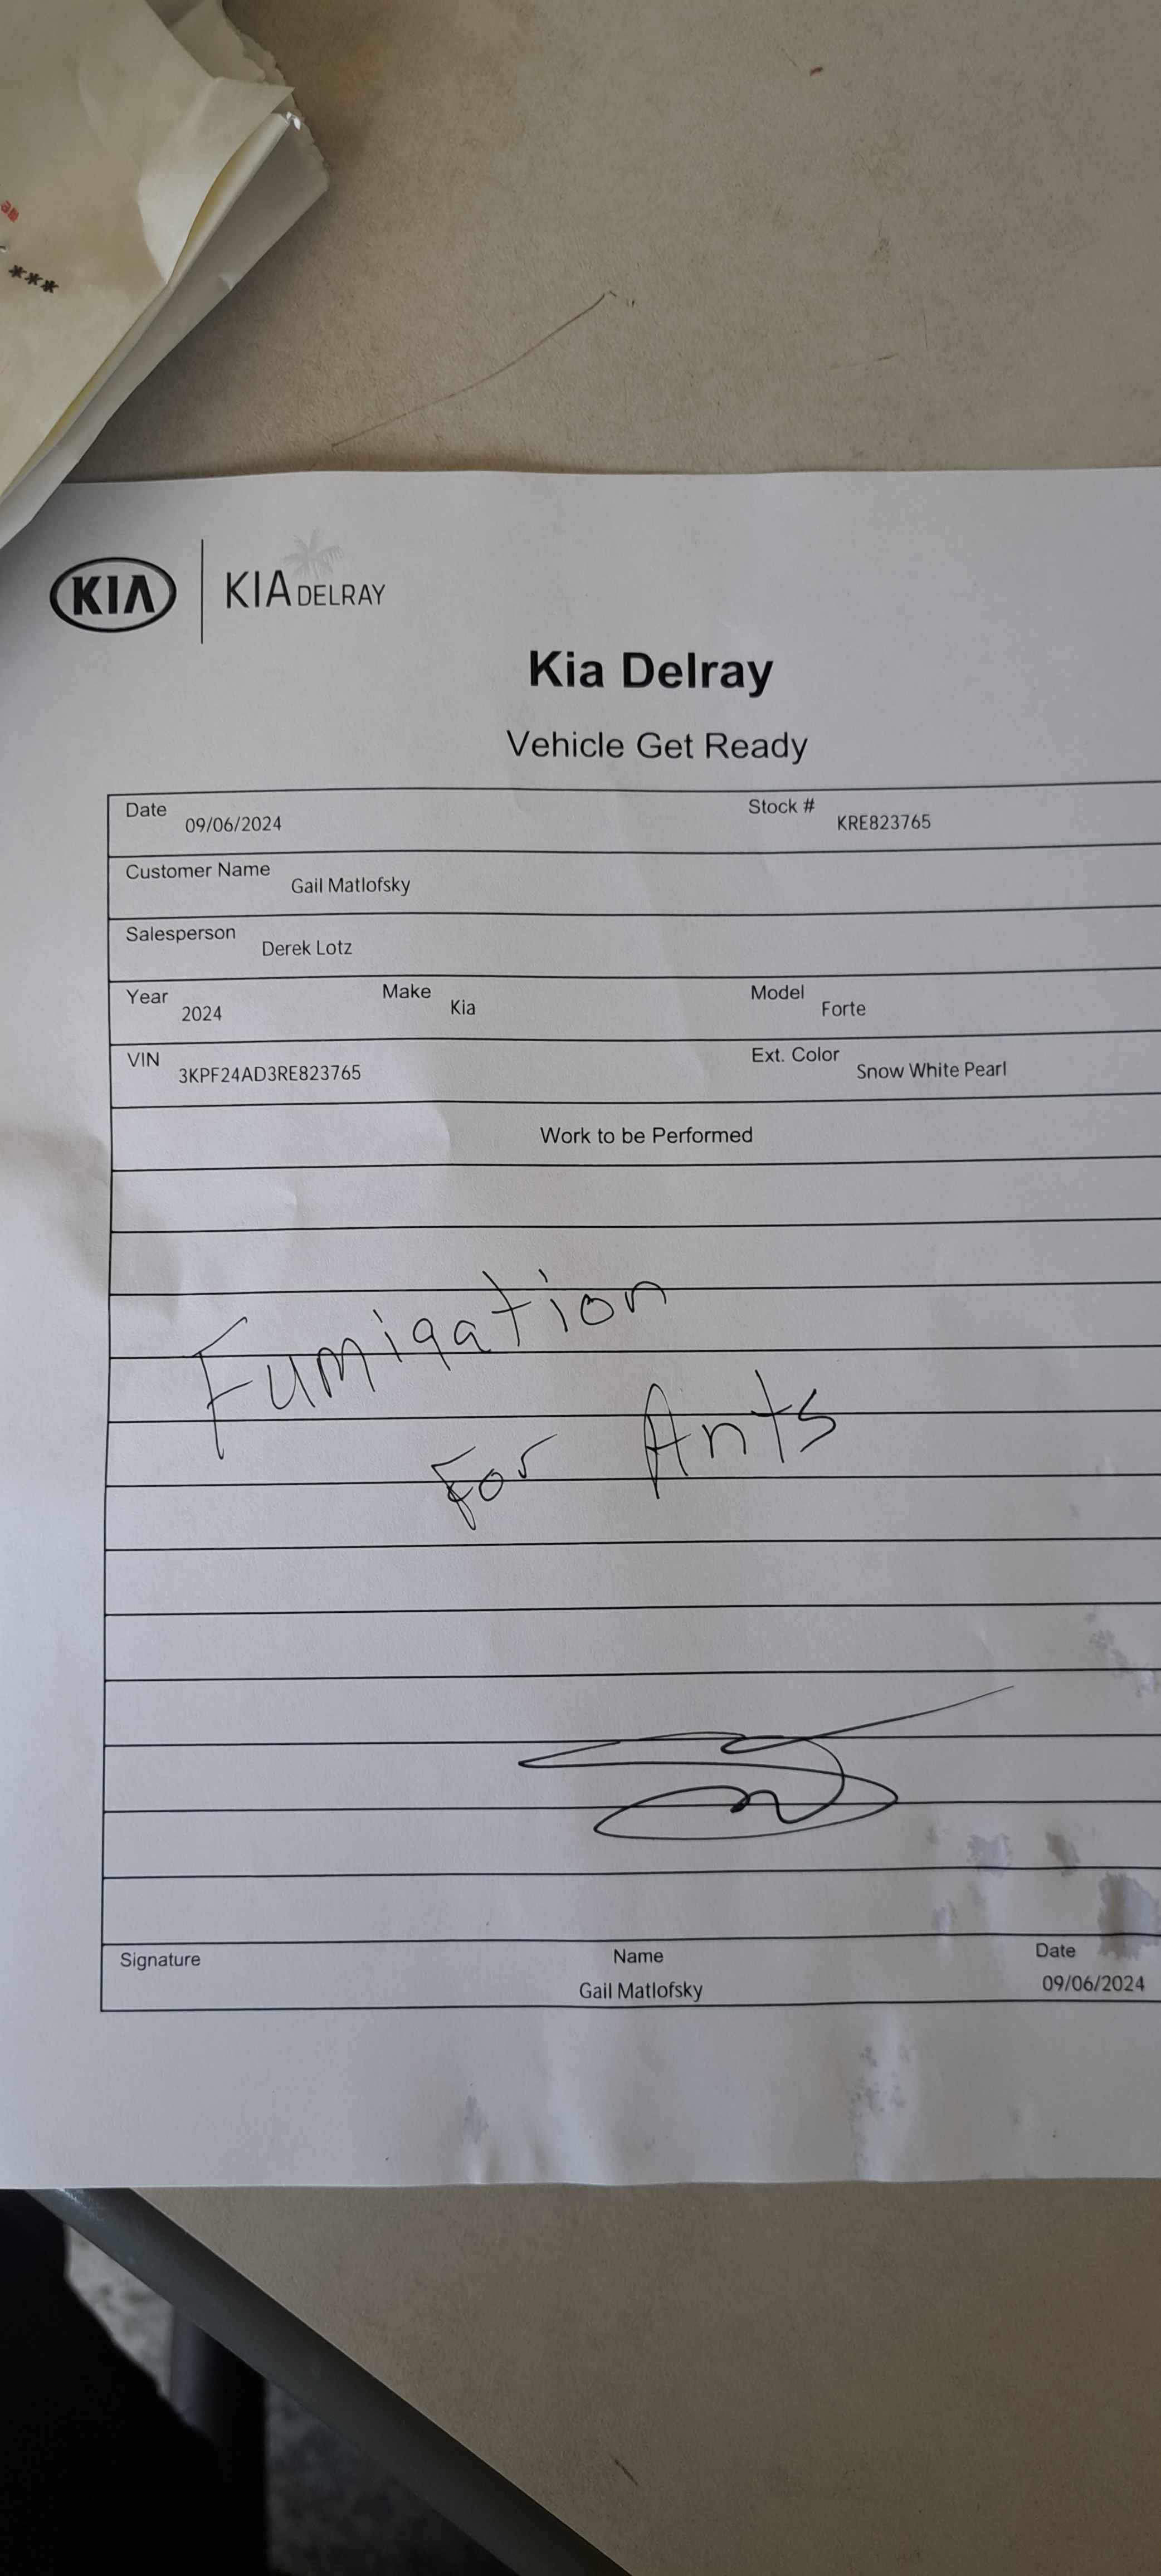 ***
KIA KIA DELRAY
Kia Delray
Vehicle Get Ready
Date 09/06/2024 Stock # KRE823765
Customer Name Gail Matlofsky
Salesperson Derek Lotz
Year 2024 Make Kia Model Forte
VIN 3KPF24AD3RE823765 Ext. Color Snow White Pearl
Work to be Performed
Fumigation
For Ants
Signature Name Date
Gail Matlofsky 09/06/2024